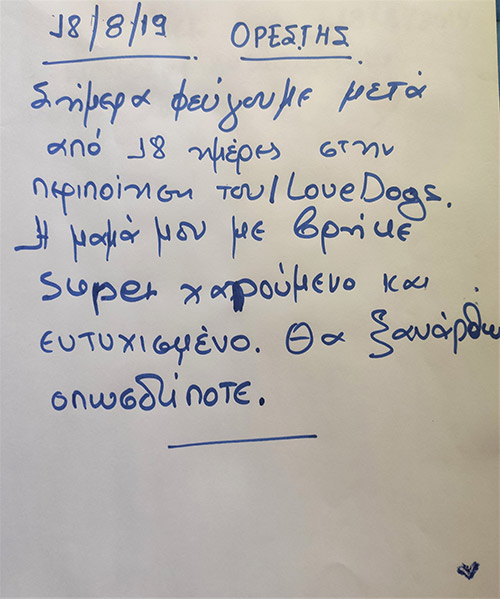 18/8/19 ΟΡΕΣΤΗΣ
Σήμερα φεύγουμε μετά
από 18 ημέρες στην
περιποίηση του I Love Dogs.
Η μαμά μου με βρήκε
super χαρούμενο και
ευτυχισμένο. Θα ξανάρθω
οπωσδήποτε.